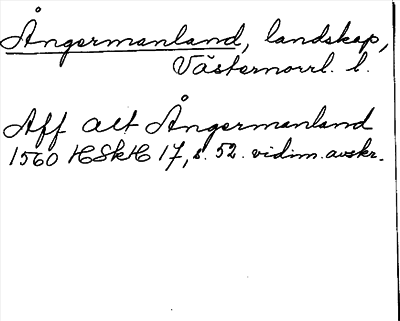 Ångermanland, landskap,
Västernorrl. l.
Aff alt Ångermanland
1560 HSkH 17, s. 52. vidim. avskr.